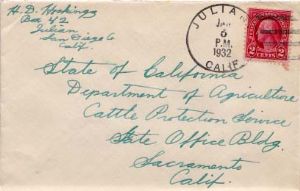 H. D. Hoskings
Box 42
Julian
San Diego Co
Calif.
JULIAN
JAN
6
P.M.
1932
CALIF.
2 CENTS 2
State of California
Department of Agriculture
Cattle Protection Service
State Office Bldg.
Sacramento
Calif.